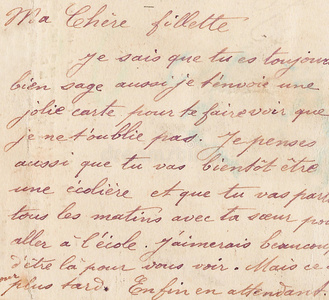 Ma Chère fillette
Je sais que tu es toujours
bien sage aussi je t'envoie une
jolie carte pour te faire voir que
je ne t'oublie pas. Je penses
aussi que tu vas bientôt être
une écolière et que tu vas part
tous les matins avec ta sœur pou
aller à l'école. j'aimerais beaucou
d'être là pour vous voir. Mais ce
plus tard. Enfin en attendant